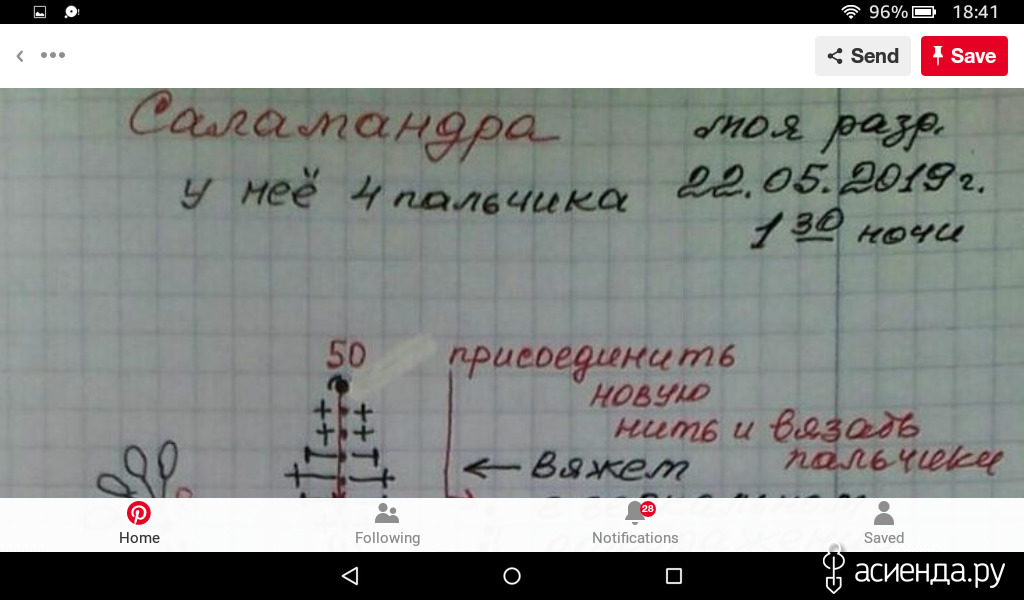 96% 18:41
Send Save
Саламандра
моя разр.
у неё 4 пальчика
22.05.2019г.
1 30 ночи
50
присоединить
новую
нить и вязать
пальчики
← вяжем
28
Home Following Notifications Saved
асиенда.ру